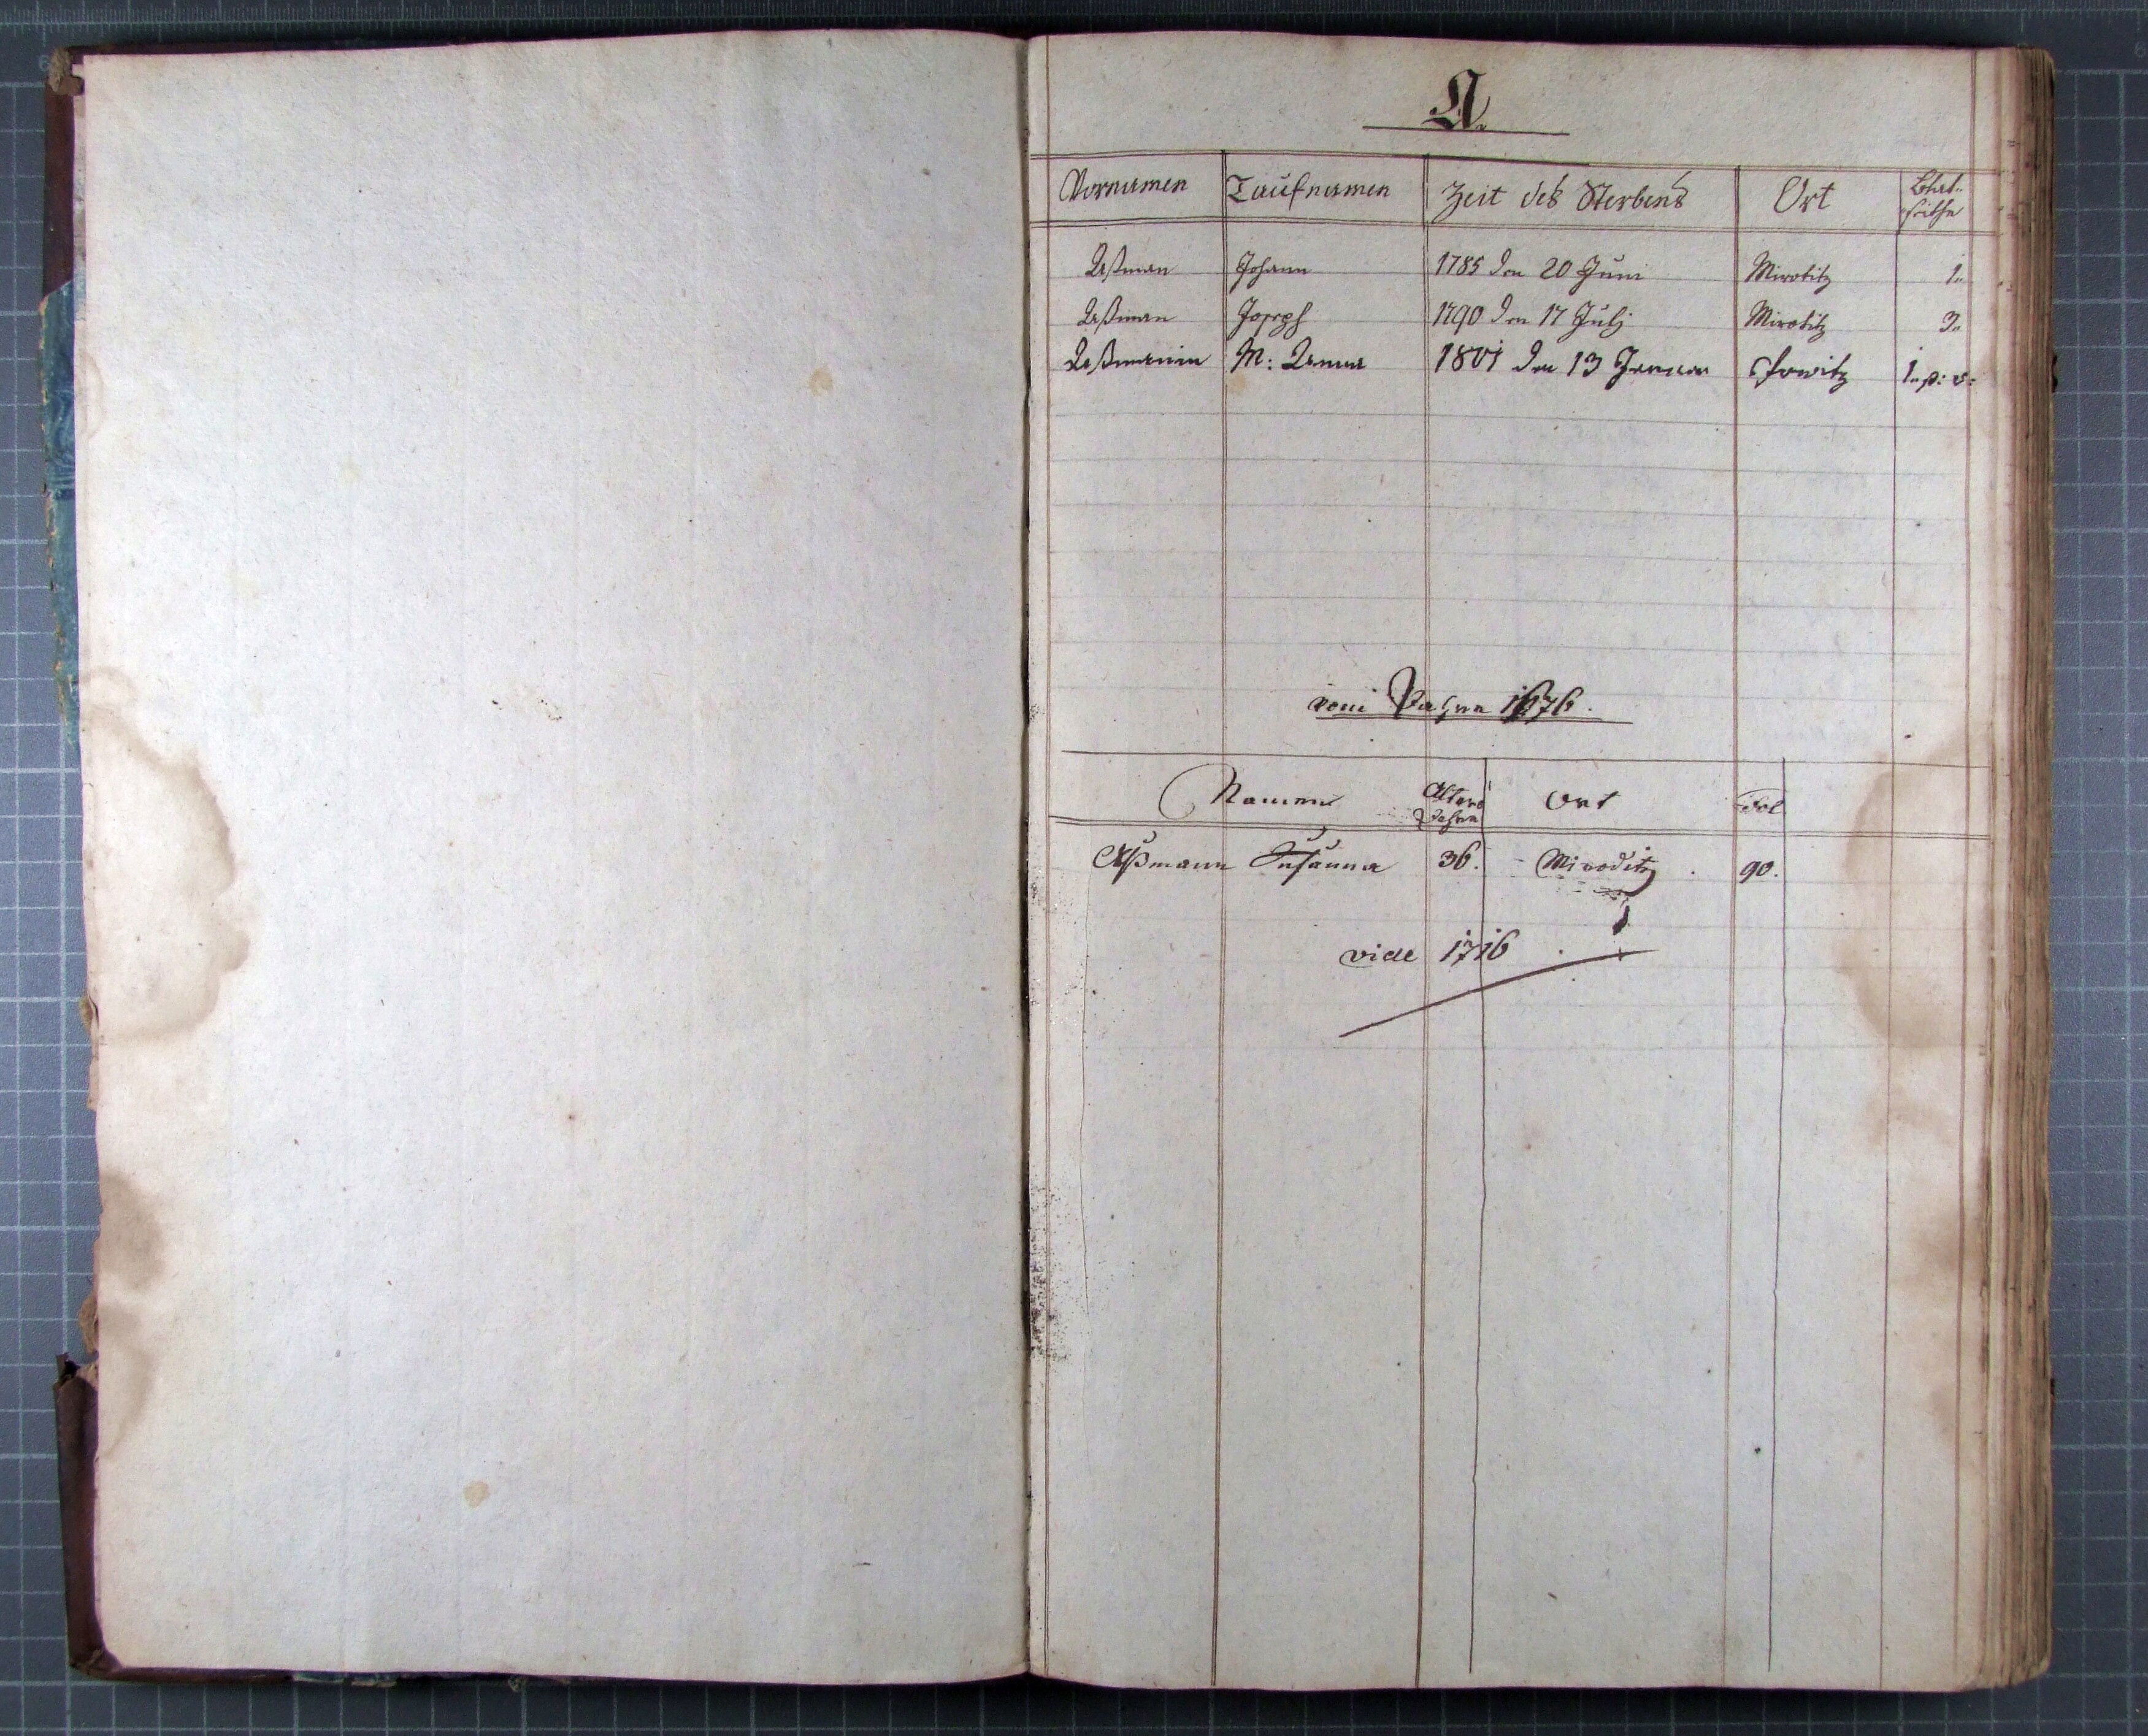 A.
Vornamen Taufnamen Zeit des Sterbens Ort Blat-
seithe
Aßman Johann 1785 den 20 Juni Mirotitz 1.
Aßman Joseph 1790 den 17 Julj Mirotitz 3.
Aßmanin M: Anna 1801 den 13 Januar 1. p: v:
vom Jahre 1676.
Namen Alters Jahre Ort Fol
Aßmann Susanna 36. Miroditz. 90.
vide 1716